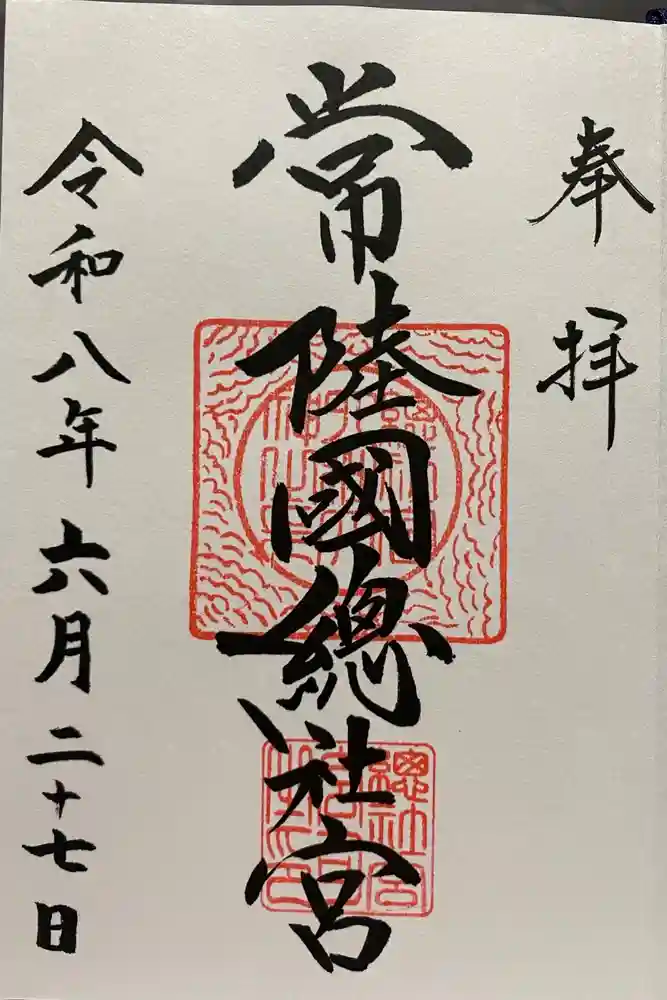 奉拝
常陸國總社宮
總社宮
令和八年六月二十七日